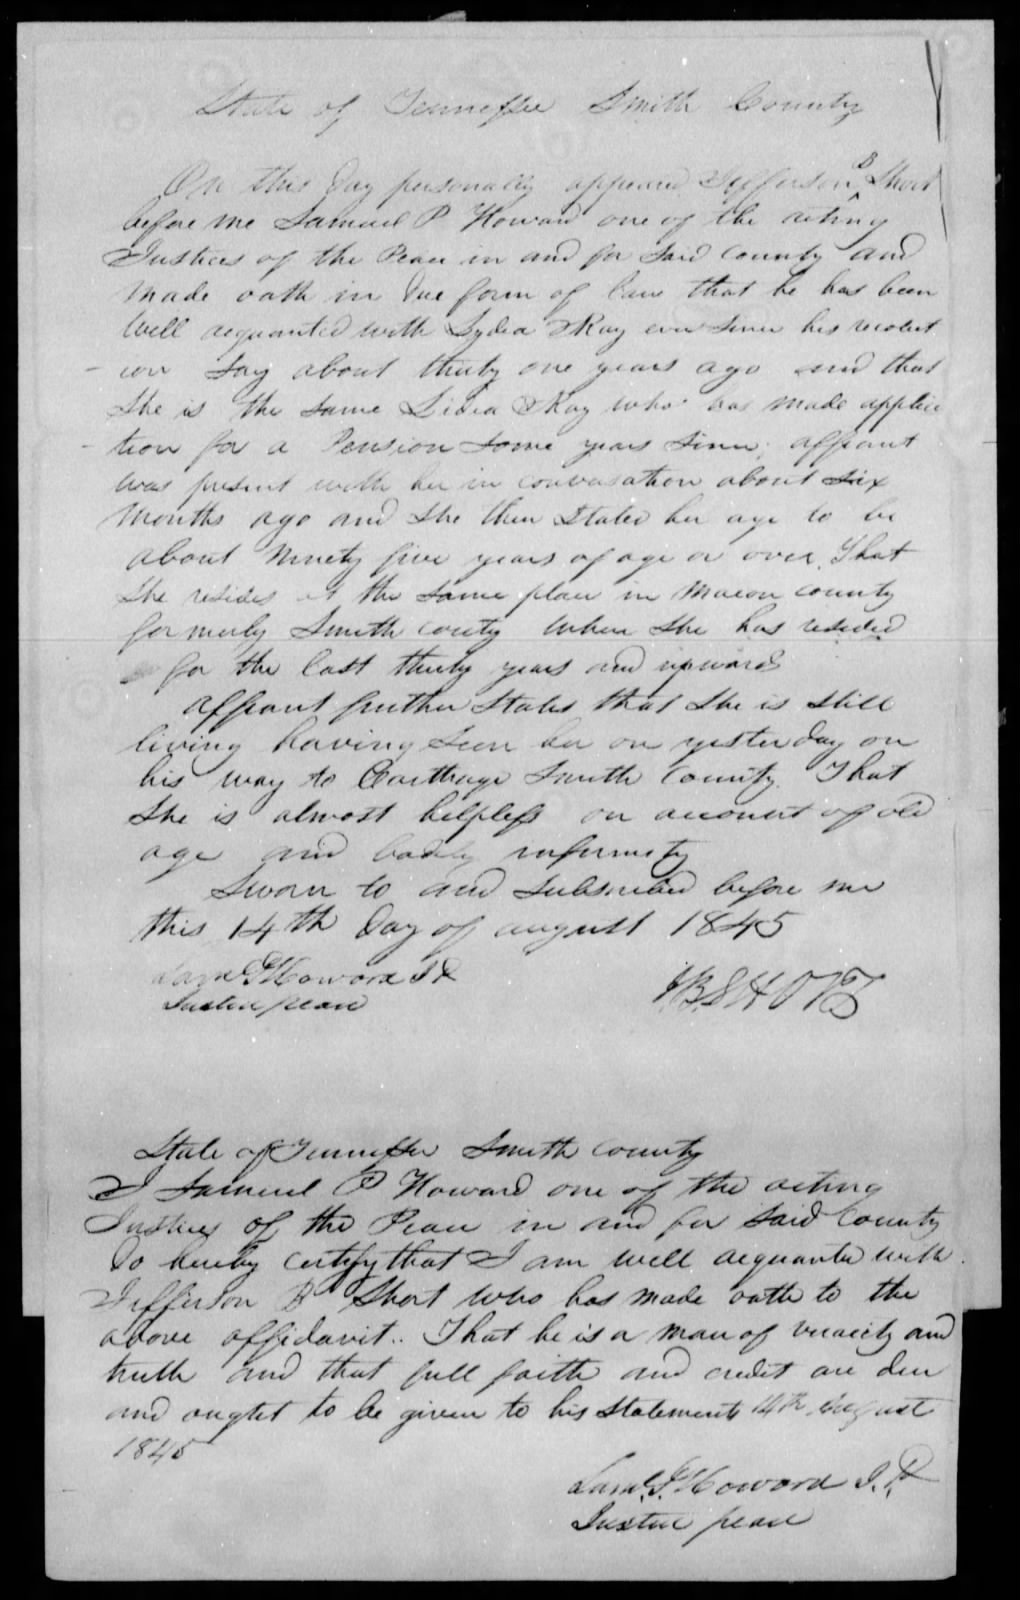 State of Tennessee Smith County
On this Day personally appeared Jefferson B Short
before me Samuel P Howard one of the acting
Justices of the Peace in and for Said County and
Made oath in Due form of law that he has been
Well acquanted with Lydia Kay ever Since his recolect
-ion Say about thirty one years ago and that
She is the Same Lidia Kay who has made applica
-tion for a Pension Some years Since, affiant
was present with her in conversation about Six
Months ago and She then Stated her age to be
about Ninety five years of age or over. That
She resides at the Same place in Macon county
formerly Smith couty Where She has resided
for the last thirty years and upwards
affiant further States that She is Still
living having Seen her on yesterday on
his way to Carthage Smith County. That
She is almost helpless on account of old
age and bodily infirmity
Sworn to and Subscribed before me
this 14th Day of august 1845
Saml P Howard J P
Justice peace
JB SHORT
State of Tennessee Smith county
I Samuel P Howard one of the acting
Justices of the Peace in and for Said County
Do hereby certify that I am well acquanted with
Jefferson B Short who has made oath to the
above affidavit. That he is a man of veracity and
truth and that full faith and credit are due
and ought to be given to his Statements 14th August
1845
Saml. P. Howard J. P.
Justice peace